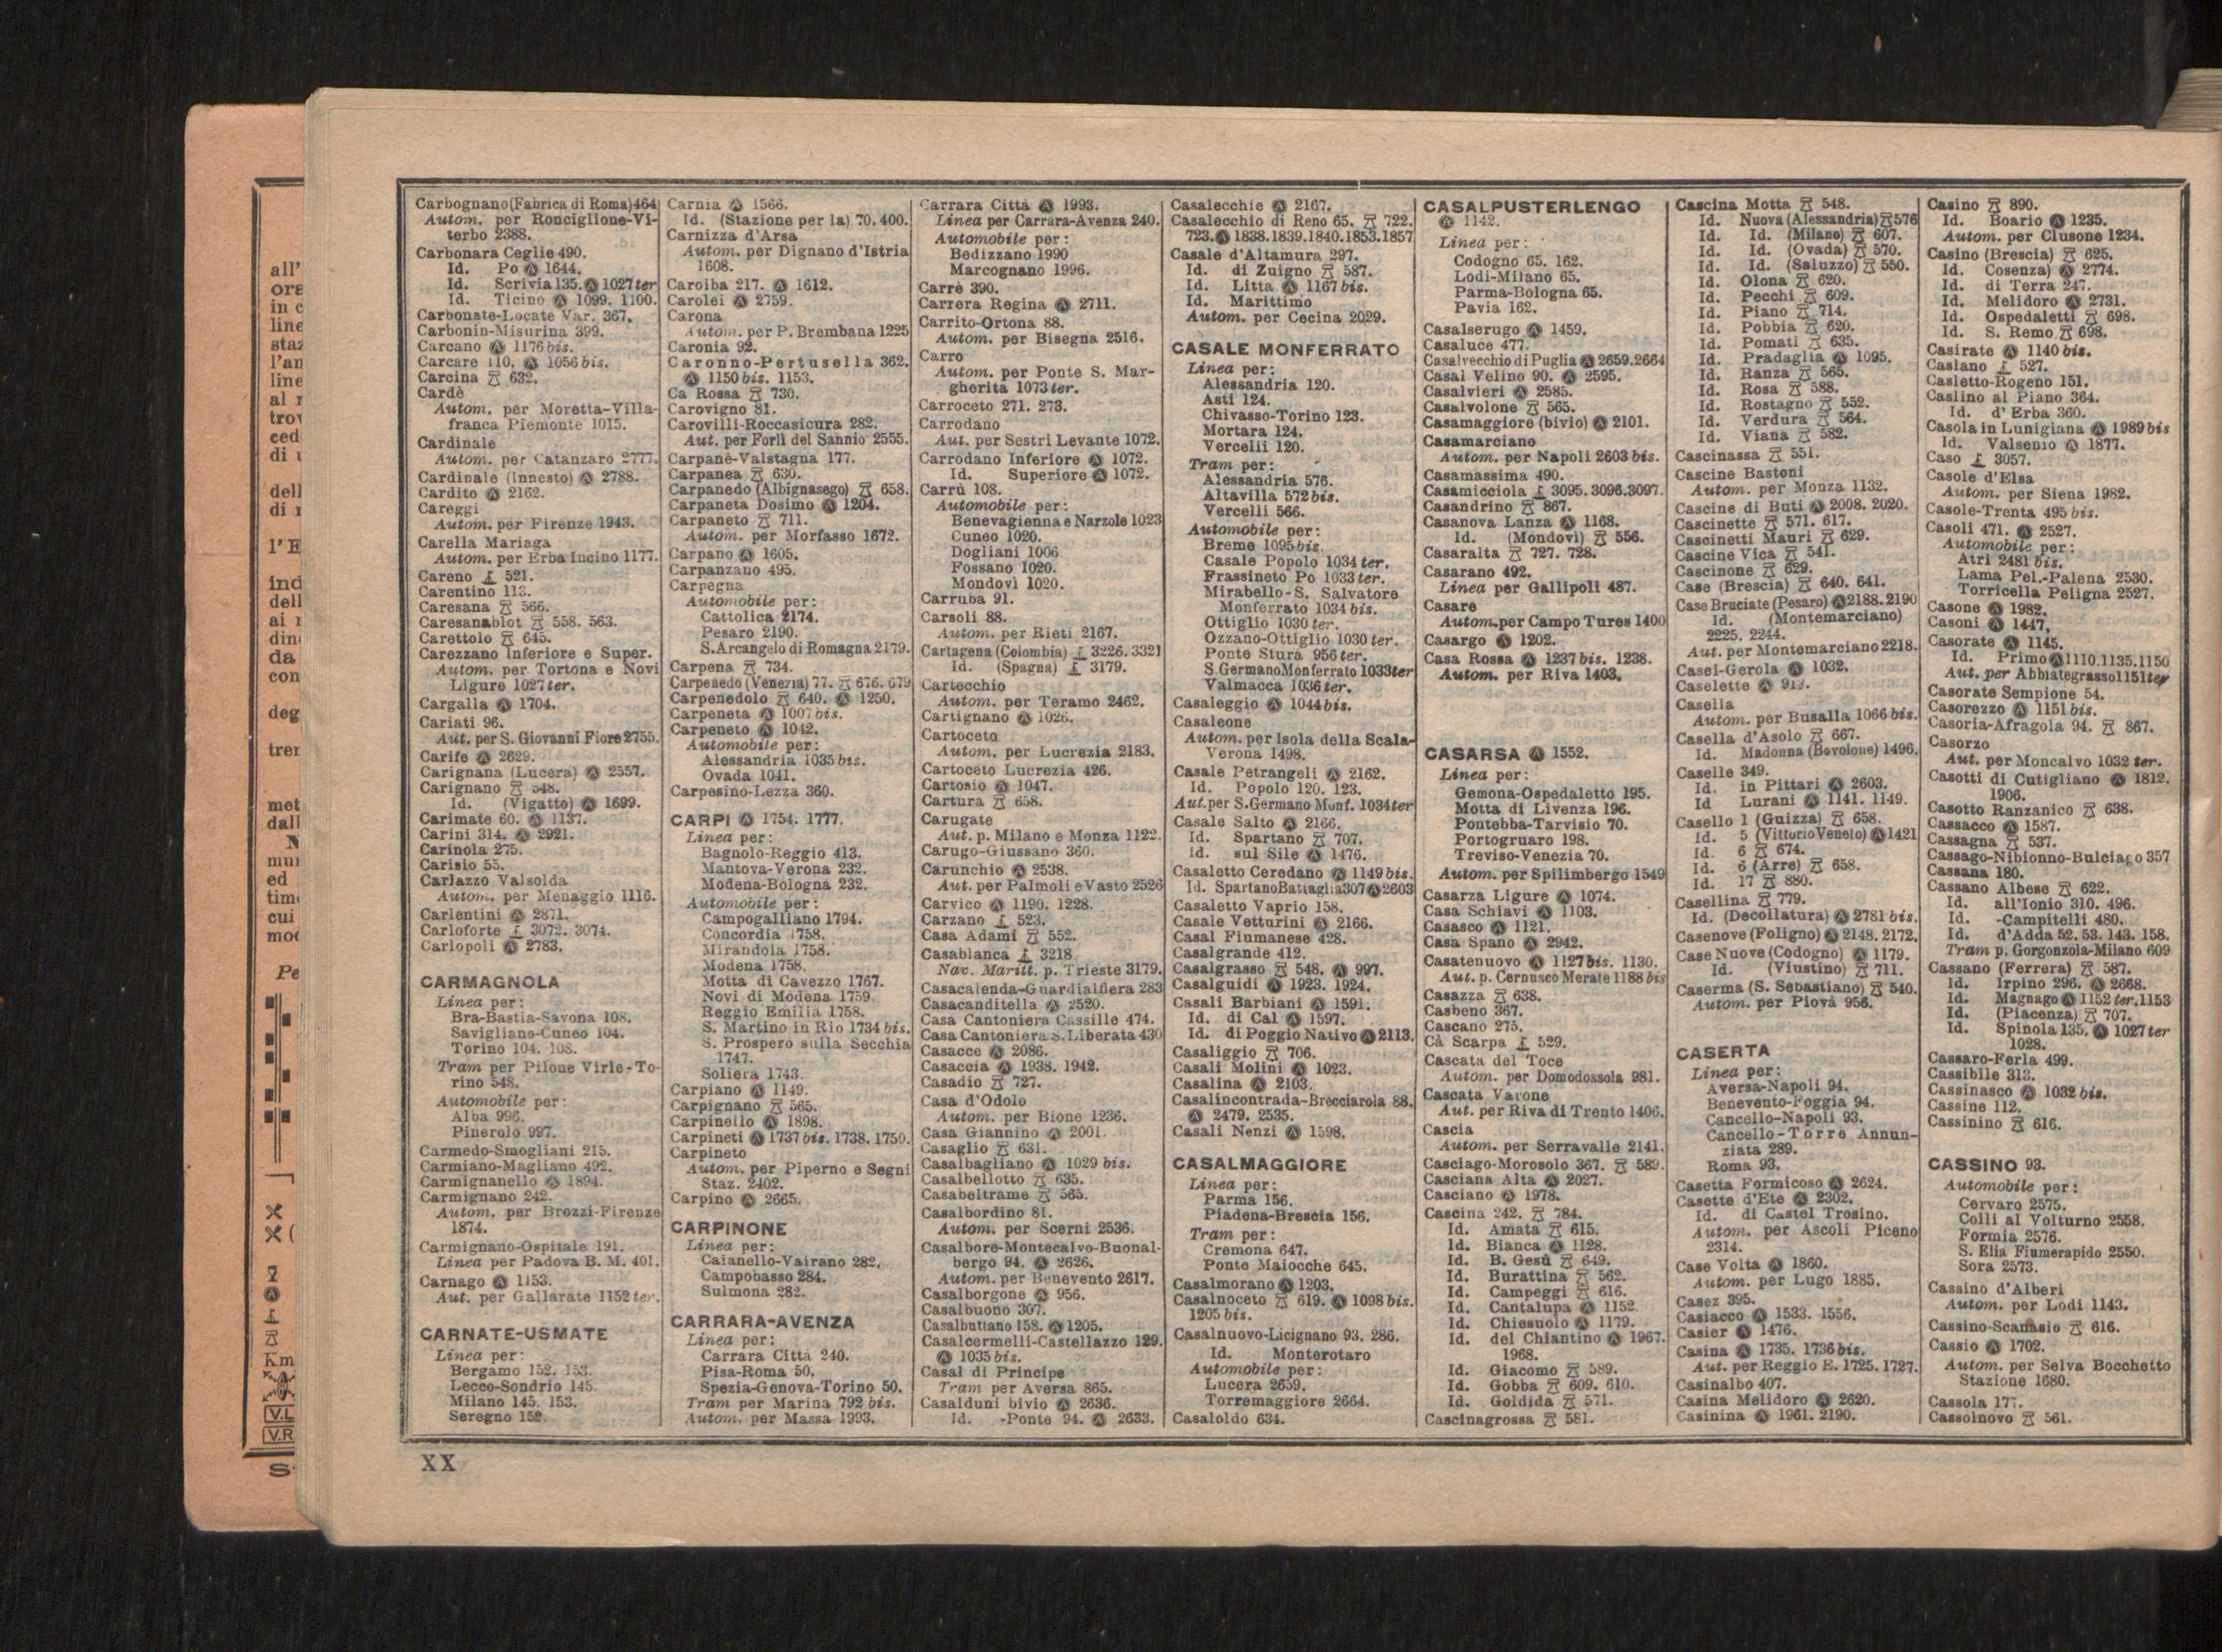 Carbognano (Fabrica di Roma) 464
Autom. per Ronciglione-Vi-
terbo 2388.
Carbonara Ceglie 490.
Id. Po Ⓐ 1644.
Id. Scrivia 135. Ⓐ 1027 ter
Id. Ticino Ⓐ 1099. 1100.
Carbonate-Locate Var. 367.
Carbonin-Misurina 399.
Carcano Ⓐ 1176 bis.
Carcare 110. Ⓐ 1056 bis.
Carcina 632.
Cardè
Autom. per Moretta-Villa-
franca Piemonte 1015.
Cardinale
Autom. per Catanzaro 2777.
Cardinale (Innesto) Ⓐ 2788.
Cardito Ⓐ 2162.
Careggi
Autom. per Firenze 1943.
Carella Mariaga
Autom. per Erba Incino 1177.
Careno 521.
Carentino 113.
Caresana 566.
Caresanablot 558. 563.
Carettolo 645.
Carezzano Inferiore e Super.
Autom. per Tortona e Novi
Ligure 1027 ter.
Cargalla Ⓐ 1704.
Cariati 96.
Aut. per S. Giovanni Fiore 2755.
Carife Ⓐ 2629.
Carignana (Lucera) Ⓐ 2557.
Carignano 548.
Id. (Vigatto) Ⓐ 1699.
Carimate 60. Ⓐ 1137.
Carini 314. Ⓐ 2921.
Carinola 275.
Carisio 55.
Carlazzo Valsolda
Autom. per Menaggio 1116.
Carlentini Ⓐ 2871.
Carloforte 3072. 3074.
Carlopoli Ⓐ 2783.
CARMAGNOLA
Linea per:
Bra-Bastia-Savona 108.
Savigliano-Cuneo 104.
Torino 104. 108.
Tram per Pilone Virle-To-
rino 548.
Automobile per:
Alba 996.
Pinerolo 997.
Carmedo-Smogliani 215.
Carmiano-Magliano 492.
Carmignanello Ⓐ 1894.
Carmignano 242.
Autom. per Brozzi-Firenze
1874.
Carmignano-Ospitale 191.
Linea per Padova B. M. 401.
Carnago Ⓐ 1153.
Aut. per Gallarate 1152 ter.
CARNATE-USMATE
Linea per:
Bergamo 152. 153.
Lecco-Sondrio 145.
Milano 145. 153.
Seregno 152.
Carnia Ⓐ 1566.
Id. (Stazione per la) 70. 400.
Carnizza d'Arsa
Autom. per Dignano d'Istria
1608.
Caroiba 217. Ⓐ 1612.
Carolei Ⓐ 2759.
Carona
Autom. per P. Brembana 1225
Caronia 92.
Caronno-Pertusella 362.
Ⓐ 1150 bis. 1153.
Ca Rossa 730.
Carovigno 81.
Carovilli-Roccasicura 282.
Aut. per Forlì del Sannio 2555.
Carpanè-Valstagna 177.
Carpanea 630.
Carpanedo (Albignasego) 658.
Carpaneta Dosimo Ⓐ 1204.
Carpaneto 711.
Autom. per Morfasso 1672.
Carpano Ⓐ 1605.
Carpanzano 495.
Carpegna
Automobile per:
Cattolica 2174.
Pesaro 2190.
S. Arcangelo di Romagna 2179.
Carpena 734.
Carpenedo (Venezia) 77. 676. 679
Carpenedolo 640. Ⓐ 1250.
Carpeneta Ⓐ 1007 bis.
Carpeneto Ⓐ 1042.
Automobile per:
Alessandria 1035 bis.
Ovada 1041.
Carpesino-Lezza 360.
CARPI Ⓐ 1754. 1777.
Linea per:
Bagnolo-Reggio 413.
Mantova-Verona 232.
Modena-Bologna 232.
Automobile per:
Campogalliano 1794.
Concordia 1758.
Mirandola 1758.
Modena 1758.
Motta di Cavezzo 1767.
Novi di Modena 1759.
Reggio Emilia 1758.
S. Martino in Rio 1734 bis.
S. Prospero sulla Secchia
1747.
Soliera 1743.
Carpiano Ⓐ 1149.
Carpignano 565.
Carpinello Ⓐ 1898.
Carpineti Ⓐ 1737 bis. 1738. 1750.
Carpineto
Autom. per Piperno e Segni
Staz. 2402.
Carpino Ⓐ 2665.
CARPINONE
Linea per:
Caianello-Vairano 282.
Campobasso 284.
Sulmona 282.
CARRARA-AVENZA
Linea per:
Carrara Città 240.
Pisa-Roma 50.
Spezia-Genova-Torino 50.
Tram per Marina 792 bis.
Autom. per Massa 1993.
Carrara Città Ⓐ 1993.
Linea per Carrara-Avenza 240.
Automobile per:
Bedizzano 1990
Marcognano 1996.
Carrè 390.
Carrera Regina Ⓐ 2711.
Carrito-Ortona 88.
Autom. per Bisegna 2516.
Carro
Autom. per Ponte S. Mar-
gherita 1073 ter.
Carroceto 271. 273.
Carrodano
Aut. per Sestri Levante 1072.
Carrodano Inferiore Ⓐ 1072.
Id. Superiore Ⓐ 1072.
Carrù 108.
Automobile per:
Benevagienna e Narzole 1023
Cuneo 1020.
Dogliani 1006.
Fossano 1020.
Mondovì 1020.
Carruba 91.
Carsoli 88.
Autom. per Rieti 2167.
Cartagena (Colombia) 3226. 3321
Id. (Spagna) 3179.
Cartecchio
Autom. per Teramo 2462.
Cartignano Ⓐ 1026.
Cartoceto
Autom. per Lucrezia 2183.
Cartoceto Lucrezia 426.
Cartosio Ⓐ 1047.
Cartura 658.
Carugate
Aut. p. Milano e Monza 1122.
Carugo-Giussano 360.
Carunchio Ⓐ 2538.
Aut. per Palmoli e Vasto 2526
Carvico Ⓐ 1190. 1228.
Carzano 523.
Casa Adami 552.
Casablanca 3218
Nav. Maritt. p. Trieste 3179.
Casacalenda-Guardialfiera 283
Casacanditella Ⓐ 2520.
Casa Cantoniera Cassille 474.
Casa Cantoniera S. Liberata 430
Casacce Ⓐ 2086.
Casaccia Ⓐ 1938. 1942.
Casadio 727.
Casa d'Odolo
Autom. per Bione 1236.
Casa Giannino Ⓐ 2001.
Casaglio 631.
Casalbagliano Ⓐ 1029 bis.
Casalbellotto 635.
Casabeltrame 565.
Casalbordino 81.
Autom. per Scerni 2536.
Casalbore-Montecalvo-Buonal-
bergo 94. Ⓐ 2626.
Autom. per Benevento 2617.
Casalborgone Ⓐ 956.
Casalbuono 307.
Casalbuttano 158. Ⓐ 1205.
Casalcermelli-Castellazzo 129.
Ⓐ 1035 bis.
Casal di Principe
Tram per Aversa 865.
Casalduni bivio Ⓐ 2636.
Id. -Ponte 94. Ⓐ 2633.
Casalecchie Ⓐ 2167.
Casalecchio di Reno 65. 722.
723. Ⓐ 1838. 1839. 1840. 1853. 1857
Casale d'Altamura 297.
Id. di Zuigno 587.
Id. Litta Ⓐ 1167 bis.
Id. Marittimo
Autom. per Cecina 2029.
CASALE MONFERRATO
Linea per:
Alessandria 120.
Asti 124.
Chivasso-Torino 123.
Mortara 124.
Vercelli 120.
Tram per:
Alessandria 576.
Altavilla 572 bis.
Vercelli 566.
Automobile per:
Breme 1095 bis
Casale Popolo 1034 ter.
Frassineto Po 1033 ter.
Mirabello-S. Salvatore
Monferrato 1034 bis.
Ottiglio 1030 ter.
Ozzano-Ottiglio 1030 ter.
Ponte Stura 956 ter.
S. Germano Monferrato 1033 ter
Valmacca 1036 ter.
Casaleggio Ⓐ 1044 bis.
Casaleone
Autom. per Isola della Scala-
Verona 1498.
Casale Petrangeli Ⓐ 2162.
Id. Popolo 120. 123.
Aut. per S. Germano Monf. 1034 ter
Casale Salto Ⓐ 2166.
Id. Spartano 707.
Id. sul Sile Ⓐ 1476.
Casaletto Ceredano Ⓐ 1149 bis.
Id. Spartano Battaglia 307 Ⓐ 2603
Casaletto Vaprio 158.
Casale Vetturini Ⓐ 2166.
Casal Fiumanese 428.
Casalgrande 412.
Casalgrasso 548. Ⓐ 997.
Casalguidi Ⓐ 1923. 1924.
Casali Barbiani Ⓐ 1591.
Id. di Cal Ⓐ 1597.
Id. di Poggio Nativo Ⓐ 2113.
Casaliggio 706.
Casali Molini Ⓐ 1023.
Casalina Ⓐ 2103.
Casalincontrada-Brecciarola 88.
Ⓐ 2479. 2535.
Casali Nenzi Ⓐ 1598.
CASALMAGGIORE
Linea per:
Parma 156.
Piadena-Brescia 156.
Tram per:
Cremona 647.
Ponte Maiocche 645.
Casalmorano Ⓐ 1203.
Casalnoceto 619. Ⓐ 1098 bis.
1205 bis.
Casalnuovo-Licignano 93. 286.
Id. Monterotaro
Automobile per:
Lucera 2659.
Torremaggiore 2664.
Casaloldo 634.
CASALPUSTERLENGO
Ⓐ 1142.
Linea per:
Codogno 65. 162.
Lodi-Milano 65.
Parma-Bologna 65.
Pavia 162.
Casalserugo Ⓐ 1459.
Casaluce 477.
Casalvecchio di Puglia Ⓐ 2659. 2664
Casal Velino 90. Ⓐ 2595.
Casalvieri Ⓐ 2585.
Casalvolone 565.
Casamaggiore (bivio) Ⓐ 2101.
Casamarciano
Autom. per Napoli 2603 bis.
Casamassima 490.
Casamicciola 3095. 3096. 3097.
Casandrino 867.
Casanova Lanza Ⓐ 1168.
Id. (Mondovì) 556.
Casaralta 727. 728.
Casarano 492.
Linea per Gallipoli 487.
Casare
Autom. per Campo Tures 1400
Casargo Ⓐ 1202.
Casa Rossa Ⓐ 1237 bis. 1238.
Autom. per Riva 1403.
CASARSA Ⓐ 1552.
Linea per:
Gemona-Ospedaletto 195.
Motta di Livenza 196.
Pontebba-Tarvisio 70.
Portogruaro 198.
Treviso-Venezia 70.
Autom. per Spilimbergo 1549
Casarza Ligure Ⓐ 1074.
Casa Schiavi Ⓐ 1103.
Casasco Ⓐ 1121.
Casa Spano Ⓐ 2942.
Casatenuovo Ⓐ 1127 bis. 1130.
Aut. p. Cernusco Merate 1188 bis
Casazza 638.
Casbeno 367.
Cascano 275.
Cà Scarpa 529.
Cascata del Toce
Autom. per Domodossola 981.
Cascata Varone
Aut. per Riva di Trento 1406.
Cascia
Autom. per Serravalle 2141.
Casciago-Morosolo 367. 589.
Casciana Alta Ⓐ 2027.
Casciano Ⓐ 1978.
Cascina 242. 784.
Id. Amata 615.
Id. Bianca Ⓐ 1128.
Id. B. Gesù 649.
Id. Burattina 562.
Id. Campeggi 616.
Id. Cantalupa Ⓐ 1152.
Id. Chiesuolo Ⓐ 1179.
Id. del Chiantino Ⓐ 1967.
1968.
Id. Giacomo 589.
Id. Gobba 609. 610.
Id. Goldida 571.
Cascinagrossa 581.
Cascina Motta 548.
Id. Nuova (Alessandria) 576
Id. Id. (Milano) 607.
Id. Id. (Ovada) 570.
Id. Id. (Saluzzo) 550.
Id. Olona 620.
Id. Pecchi 609.
Id. Piano 714.
Id. Pobbia 620.
Id. Pomati 635.
Id. Pradaglia Ⓐ 1095.
Id. Ranza 565.
Id. Rosa 588.
Id. Rostagno 552.
Id. Verdura 564.
Id. Viana 582.
Cascinassa 551.
Cascine Bastoni
Autom. per Monza 1132.
Cascine di Buti Ⓐ 2008. 2020.
Cascinette 571. 617.
Cascinetti Mauri 629.
Cascine Vica 541.
Cascinone 629.
Case (Brescia) 640. 641.
Case Bruciate (Pesaro) Ⓐ 2188. 2190
Id. (Montemarciano)
2225. 2244.
Aut. per Montemarciano 2218.
Casei-Gerola Ⓐ 1032.
Caselette Ⓐ 919.
Casella
Autom. per Busalla 1066 bis.
Casella d'Asolo 667.
Id. Madonna (Bovolone) 1496.
Caselle 349.
Id. in Pittari Ⓐ 2603.
Id Lurani Ⓐ 1141. 1149.
Casello 1 (Guizza) 658.
Id. 5 (Vittorio Veneto) Ⓐ 1421
Id. 6 674.
Id. 6 (Arre) 658.
Id. 17 880.
Casellina 779.
Id. (Decollatura) Ⓐ 2781 bis.
Casenove (Foligno) Ⓐ 2148. 2172.
Case Nuove (Codogno) Ⓐ 1179.
Id. (Viustino) 711.
Caserma (S. Sebastiano) 540.
Autom. per Piovà 956.
CASERTA
Linea per:
Aversa-Napoli 94.
Benevento-Foggia 94.
Cancello-Napoli 93.
Cancello-Torre Annun-
ziata 289.
Roma 93.
Casetta Formicoso Ⓐ 2624.
Casette d'Ete Ⓐ 2302.
Id. di Castel Trosino.
Autom. per Ascoli Piceno
2314.
Case Volta Ⓐ 1860.
Autom. per Lugo 1885.
Casez 395.
Casiacco Ⓐ 1533. 1556.
Casier Ⓐ 1476.
Casina Ⓐ 1735. 1736 bis.
Aut. per Reggio E. 1725. 1727.
Casinalbo 407.
Casina Melidoro Ⓐ 2620.
Casinina Ⓐ 1961. 2190.
Casino 890.
Id. Boario Ⓐ 1235.
Autom. per Clusone 1234.
Casino (Brescia) 625.
Id. Cosenza) Ⓐ 2774.
Id. di Terra 247.
Id. Melidoro Ⓐ 2731.
Id. Ospedaletti 698.
Id. S. Remo 698.
Casirate Ⓐ 1140 bis.
Caslano 527.
Casletto-Rogeno 151.
Caslino al Piano 364.
Id. d'Erba 360.
Casola in Lunigiana Ⓐ 1989 bis
Id. Valsenio Ⓐ 1877.
Caso 3057.
Casole d'Elsa
Autom. per Siena 1982.
Casole-Trenta 495 bis.
Casoli 471. Ⓐ 2527.
Automobile per:
Atri 2481 bis.
Lama Pel.-Palena 2530.
Torricella Peligna 2527.
Casone Ⓐ 1982.
Casoni Ⓐ 1447.
Casorate Ⓐ 1145.
Id. Primo Ⓐ 1110. 1135. 1150
Aut. per Abbiategrasso 1151 ter
Casorate Sempione 54.
Casorezzo Ⓐ 1151 bis.
Casoria-Afragola 94. 867.
Casorzo
Aut. per Moncalvo 1032 ter.
Casotti di Cutigliano Ⓐ 1812.
1906.
Casotto Ranzanico 638.
Cassacco Ⓐ 1587.
Cassagna 537.
Cassago-Nibionno-Bulciago 357
Cassana 180.
Cassano Albese 622.
Id. all'Ionio 310. 496.
Id. -Campitelli 480.
Id. d'Adda 52. 53. 143. 158.
Tram p. Gorgonzola-Milano 609
Cassano (Ferrera) 587.
Id. Irpino 296. Ⓐ 2668.
Id. Magnago Ⓐ 1152 ter. 1153
Id. (Piacenza) 707.
Id. Spinola 135. Ⓐ 1027 ter
1028.
Cassaro-Ferla 499.
Cassibile 313.
Cassinasco Ⓐ 1032 bis.
Cassine 112.
Cassinino 616.
CASSINO 93.
Automobile per:
Cervaro 2575.
Colli al Volturno 2558.
Formia 2576.
S. Elia Fiumerapido 2550.
Sora 2573.
Cassino d'Alberi
Autom. per Lodi 1143.
Cassino-Scanasio 616.
Cassio Ⓐ 1702.
Autom. per Selva Bocchetto
Stazione 1680.
Cassola 177.
Cassolnovo 561.
XX